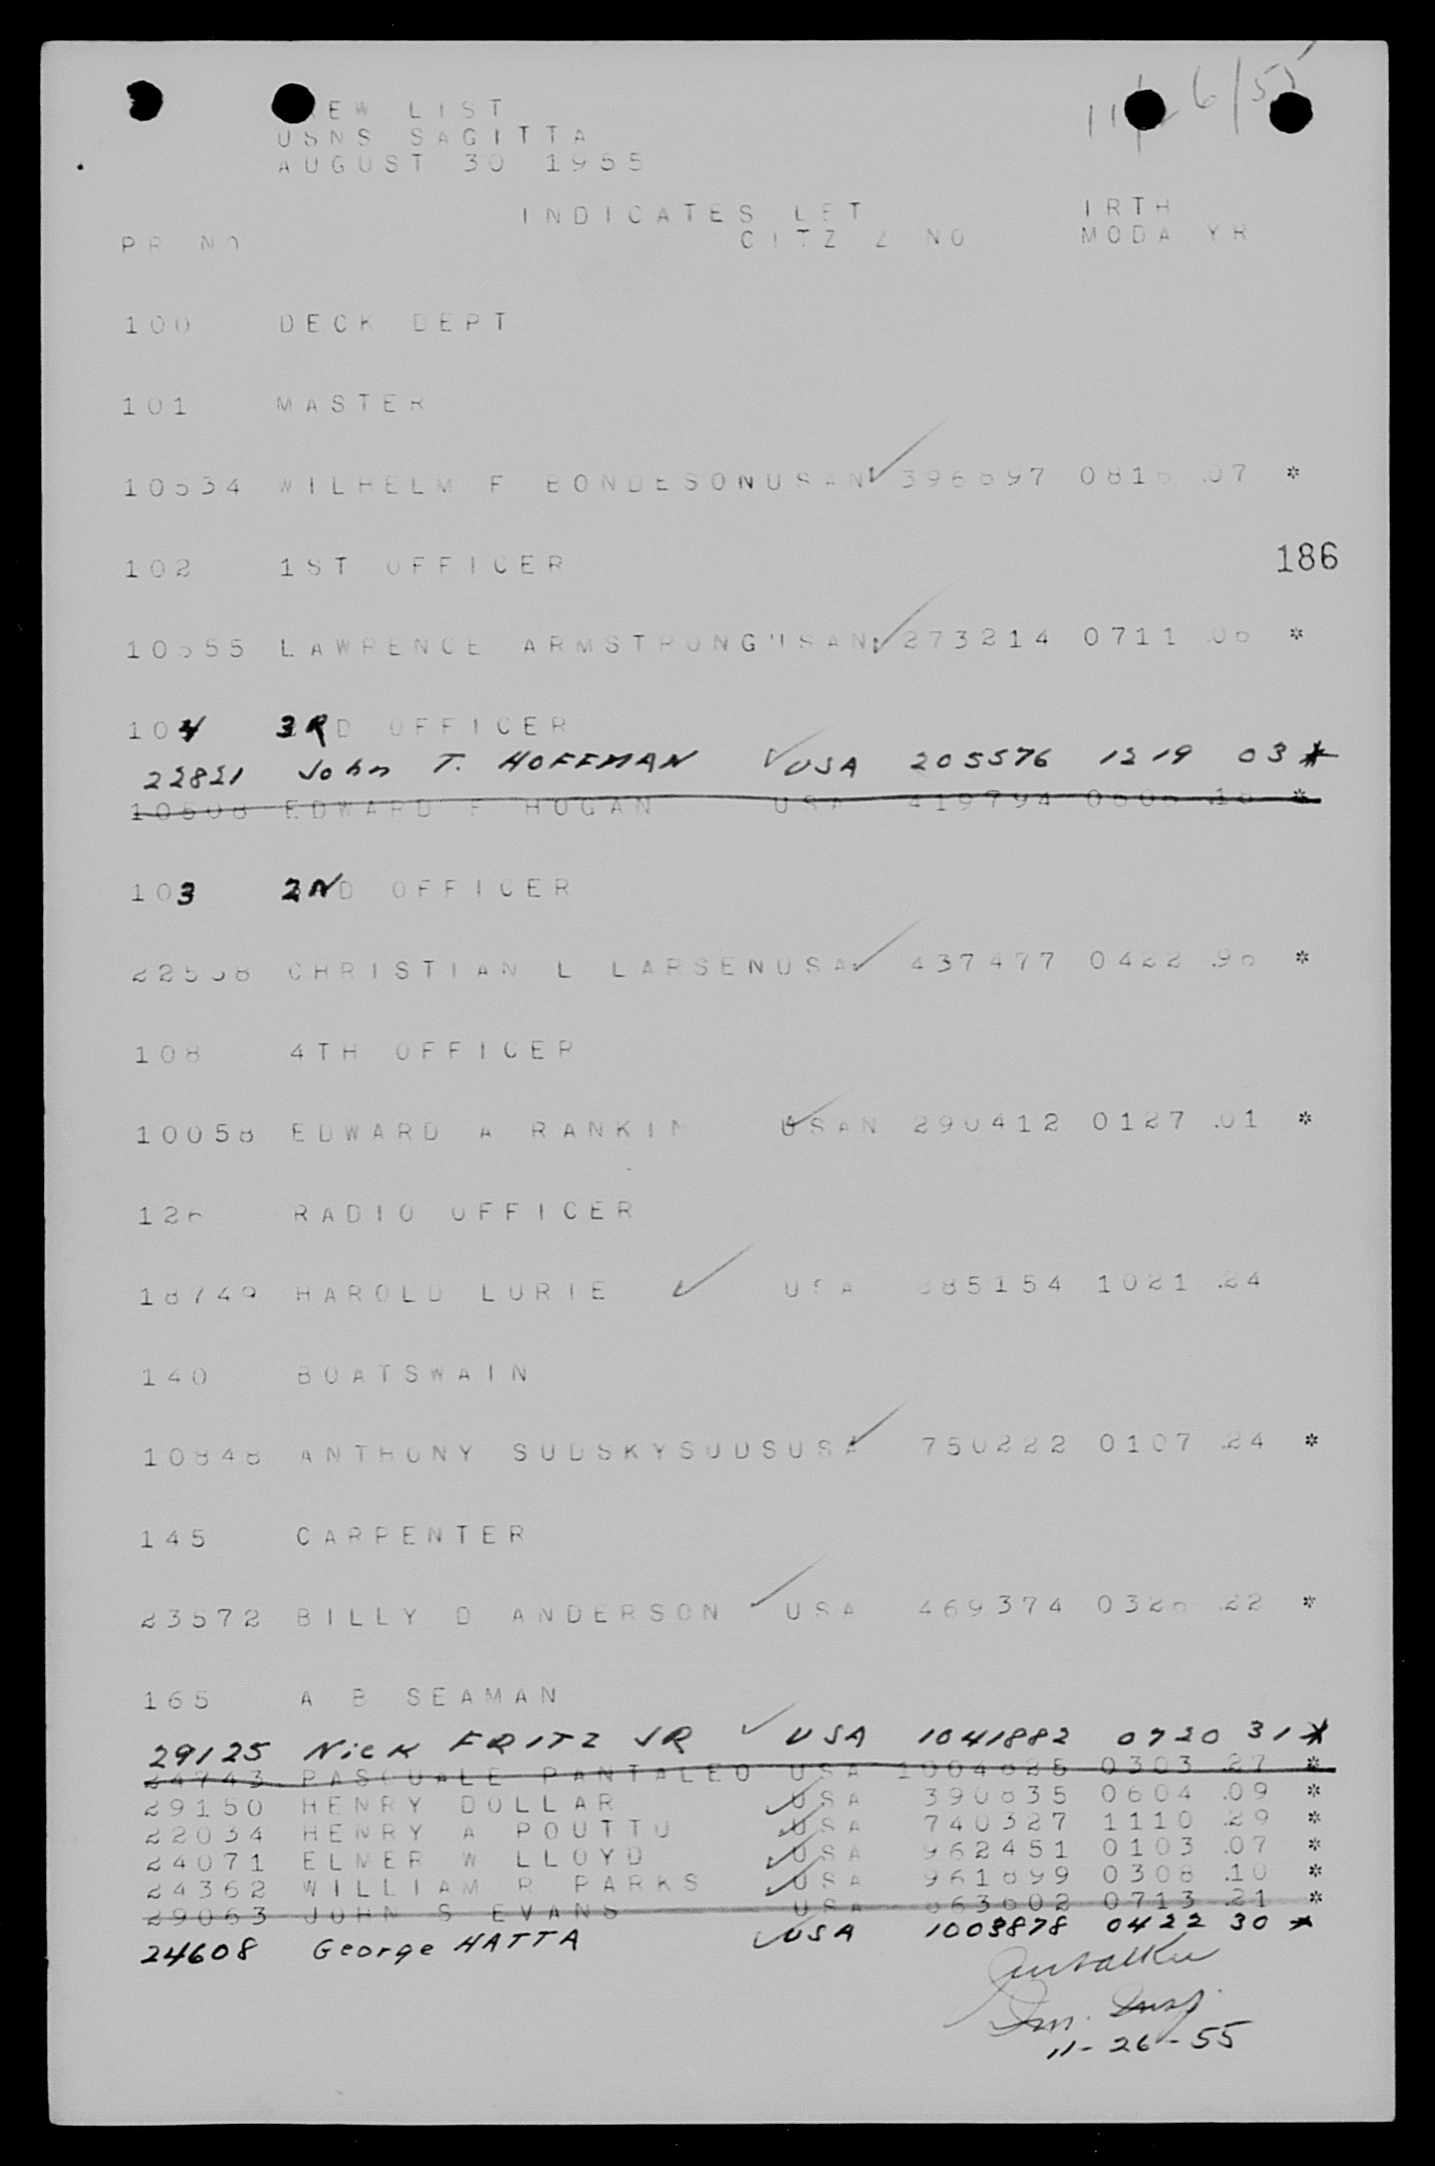 11/26/55
EW LIST
USNS SAGITTA
AUGUST 30 1955
INDICATES LET IRTH
PR NO CITZ Z NO MODA YR
100 DECK DEPT
101 MASTER
10534 WILHELM F BONDESONUSAN 0816 .07 *
102 1ST OFFICER
186
10555 LAWRENCE ARMSTRONGUSAN 273214 0711 .06 *
104 3RD OFFICER
22821 John T. HOFFMAN USA 205576 1219 03 *
EDWARD F HOGAN USA 419794 *
103 2ND OFFICER
CHRISTIAN L LARSENUSA 437477 0422 .96 *
108 4TH OFFICER
10058 EDWARD A RANKIN USAN 290412 0127 .01 *
126 RADIO OFFICER
18749 HAROLD LURIE USA 1021 .24
140 BOATSWAIN
10848 ANTHONY SUDSKYSUDSUSA 750222 0107 .24 *
145 CARPENTER
23572 BILLY D ANDERSON USA 469374 0326 .22 *
165 A B SEAMAN
29125 Nick FRITZ JR USA 1041882 0720 31 *
24743 PASQUALE PANTALEO USA 0303 .27 *
29150 HENRY DOLLAR USA 0604 .09 *
22034 HENRY A POUTTU USA 740327 1110 .29 *
24071 ELMER W LLOYD USA 962451 0103 .07 *
24362 WILLIAM R PARKS USA 961899 0308 .10 *
29063 JOHN S EVANS USA 0713 .21 *
24608 George HATTA USA 1003878 0422 30 *
Im. Insp.
11-26-55